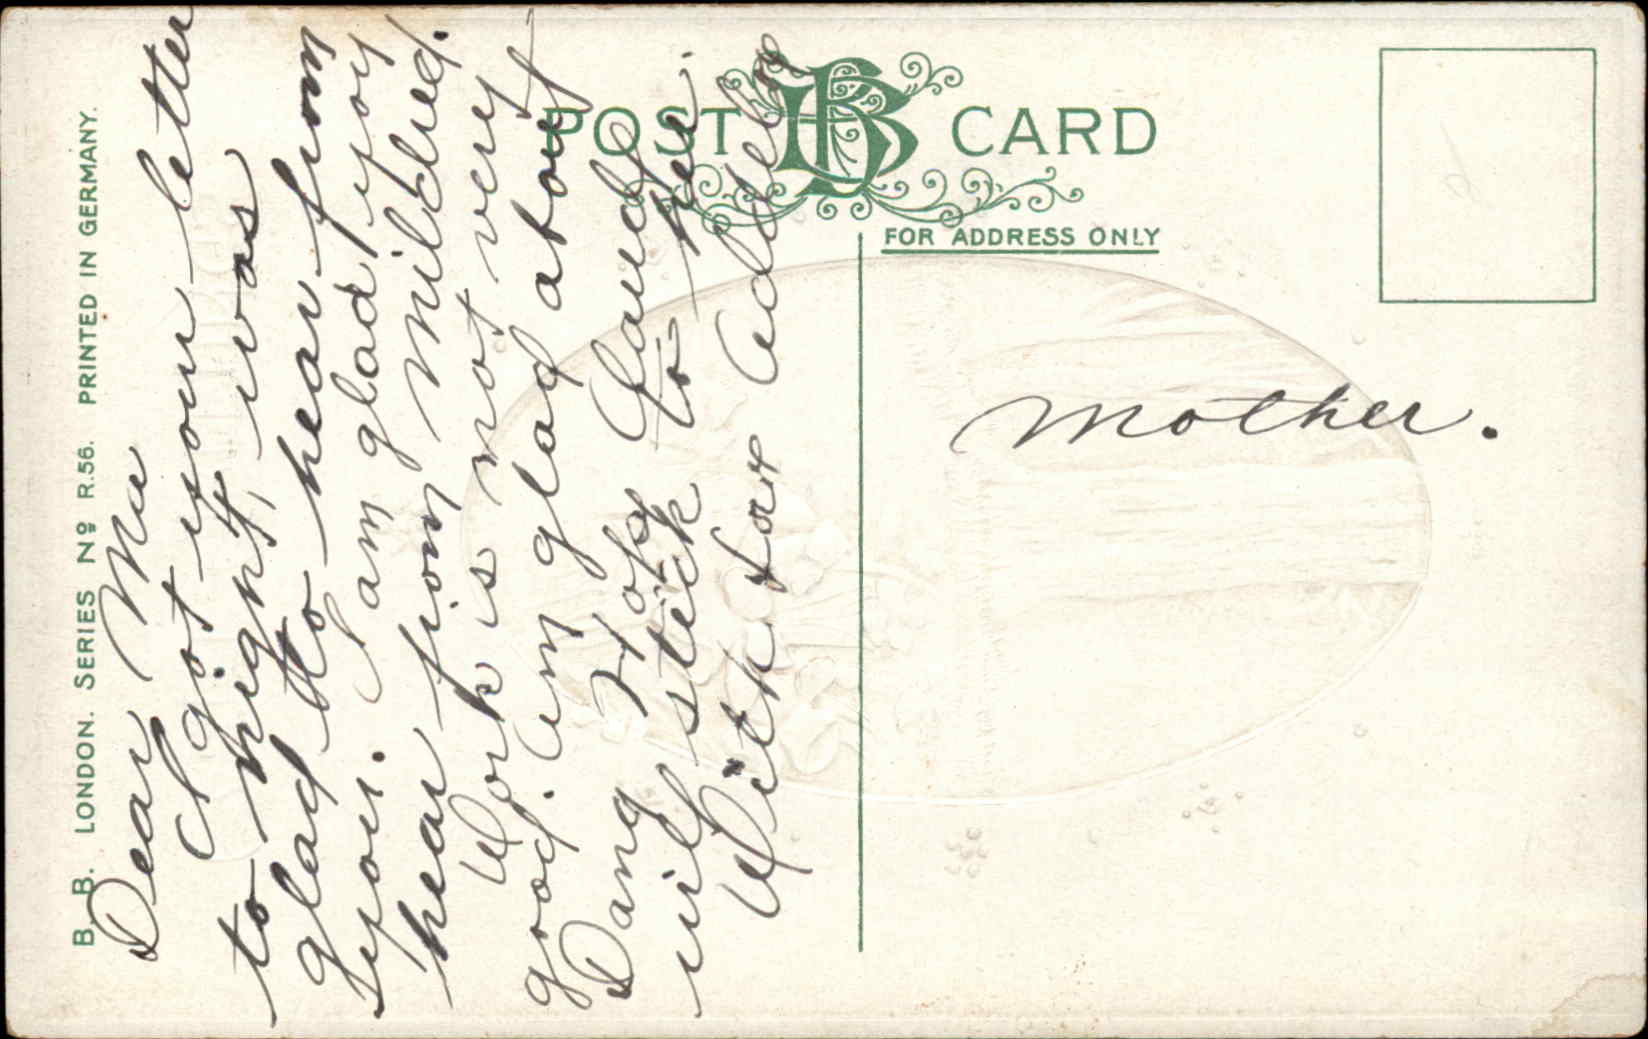 B. B. LONDON. SERIES No R.56. PRINTED IN GERMANY.
POST CARD
FOR ADDRESS ONLY
Dear Ma
I got your letter
to night, was
glad to hear from
you. I am glad you
hear from Mildred.
Work is not very
good. Am glad about
Hope
will stick to her.
With love
Mother.